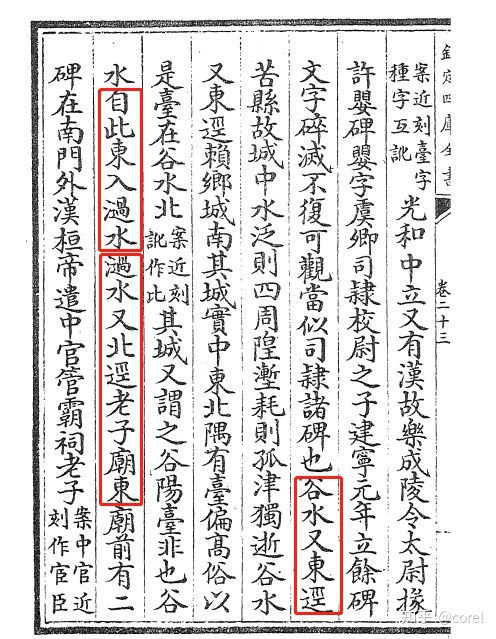 欽定四庫全書
卷二十三
案近刻臺字
種字互訛
光和中立又有漢故樂成陵令太尉掾
許嬰碑嬰字虞卿司隸校尉之子建寧元年立餘碑
文字碎滅不復可觀當似司隸諸碑也谷水又東逕
苦縣故城中水泛則四周隍塹耗則孤津獨逝谷水
又東逕賴鄉城南其城實中東北隅有臺偏高俗以
是臺在谷水北
案近刻
訛作比
其城又謂之谷陽臺非也谷
水自此東入濄水濄水又北逕老子廟東廟前有二
碑在南門外漢桓帝遣中官管霸祠老子
案中官近
刻作官臣
知乎 @corel